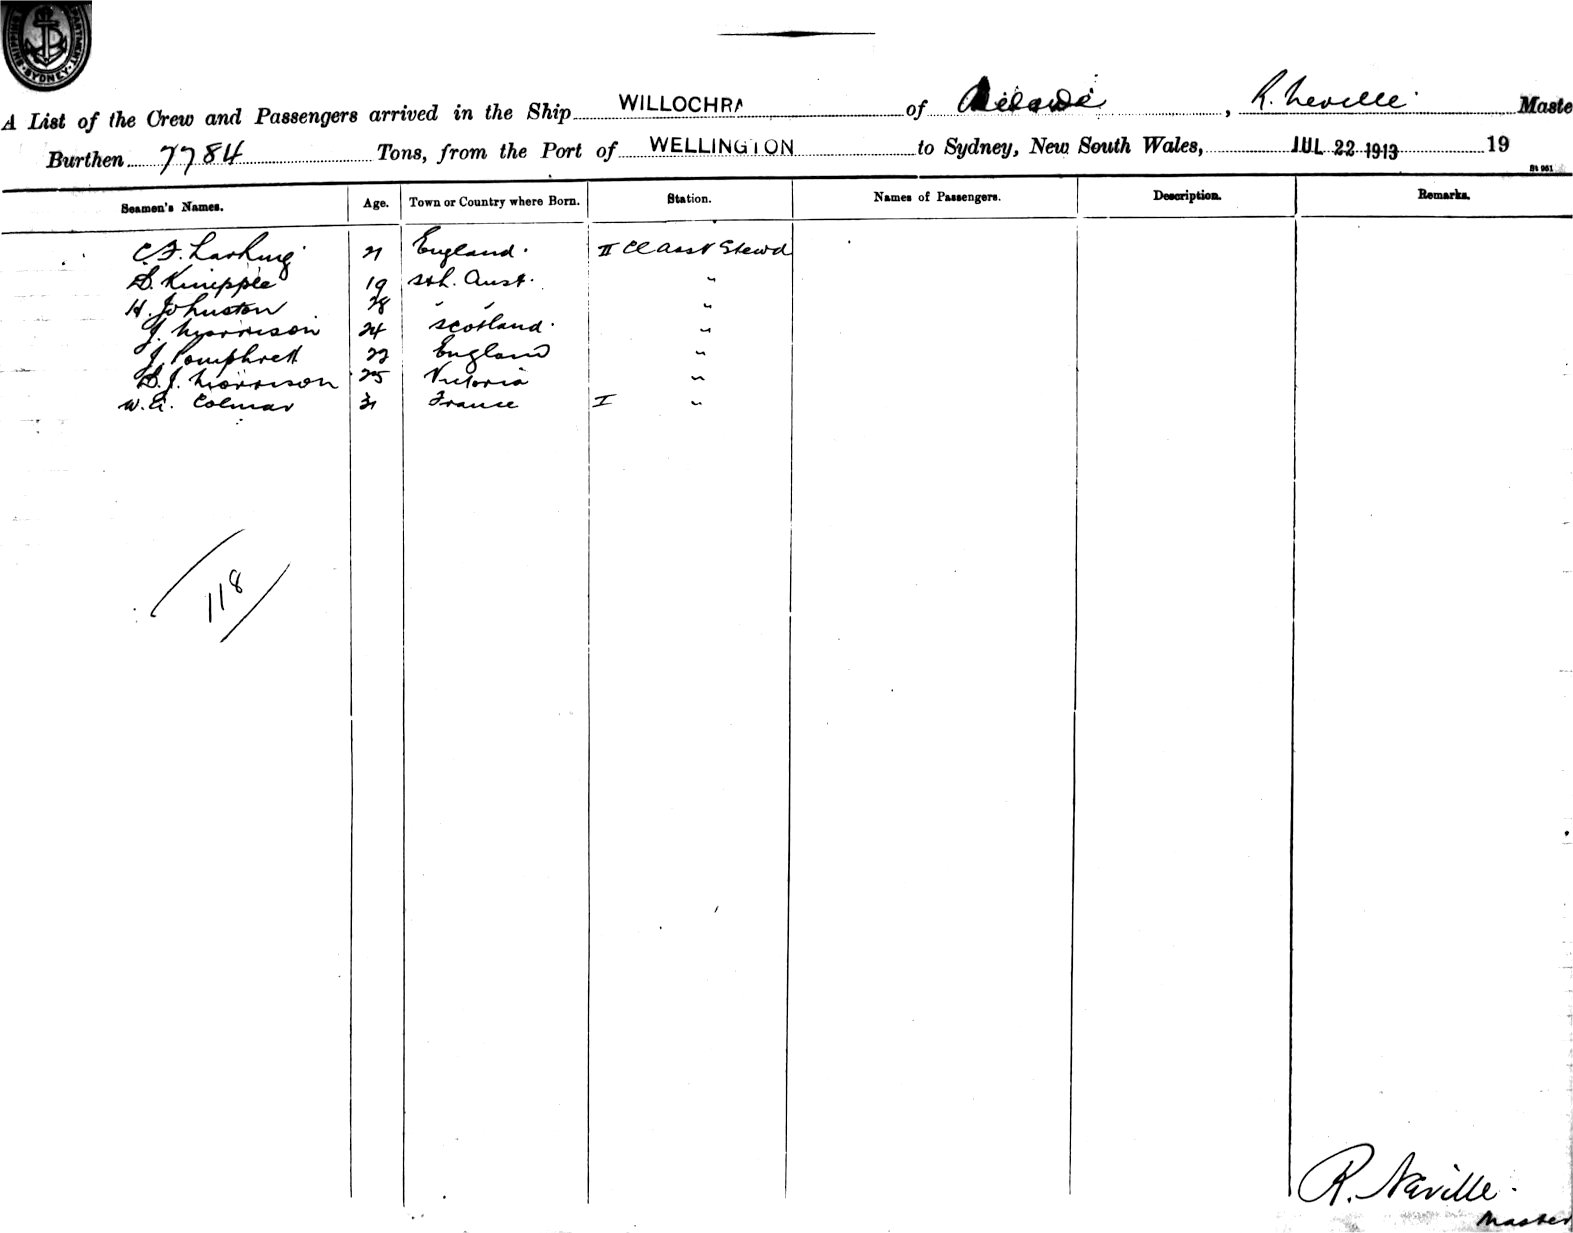 SHIPPING DEPARTMENT SYDNEY
A List of the Crew and Passengers arrived in the Ship WILLOCHRA of Adelaide, R. Neville Maste
Burthen 7784 Tons, from the Port of WELLINGTON to Sydney, New South Wales, JUL 22 1913 19
St 961
Seamen's Names. Age. Town or Country where Born. Station. Names of Passengers. Description. Remarks.
C. F. Larking 21 England. II Cl Asst Stewd
S. Knippie 19 Sth. Aust. "
H. Johnston 28 " " "
J. Morrison 24 Scotland. "
J. Pomphrett 22 England "
D. J. Morrison 25 Victoria "
W. G. Colmar 31 France I "
118
R. Neville.
Master